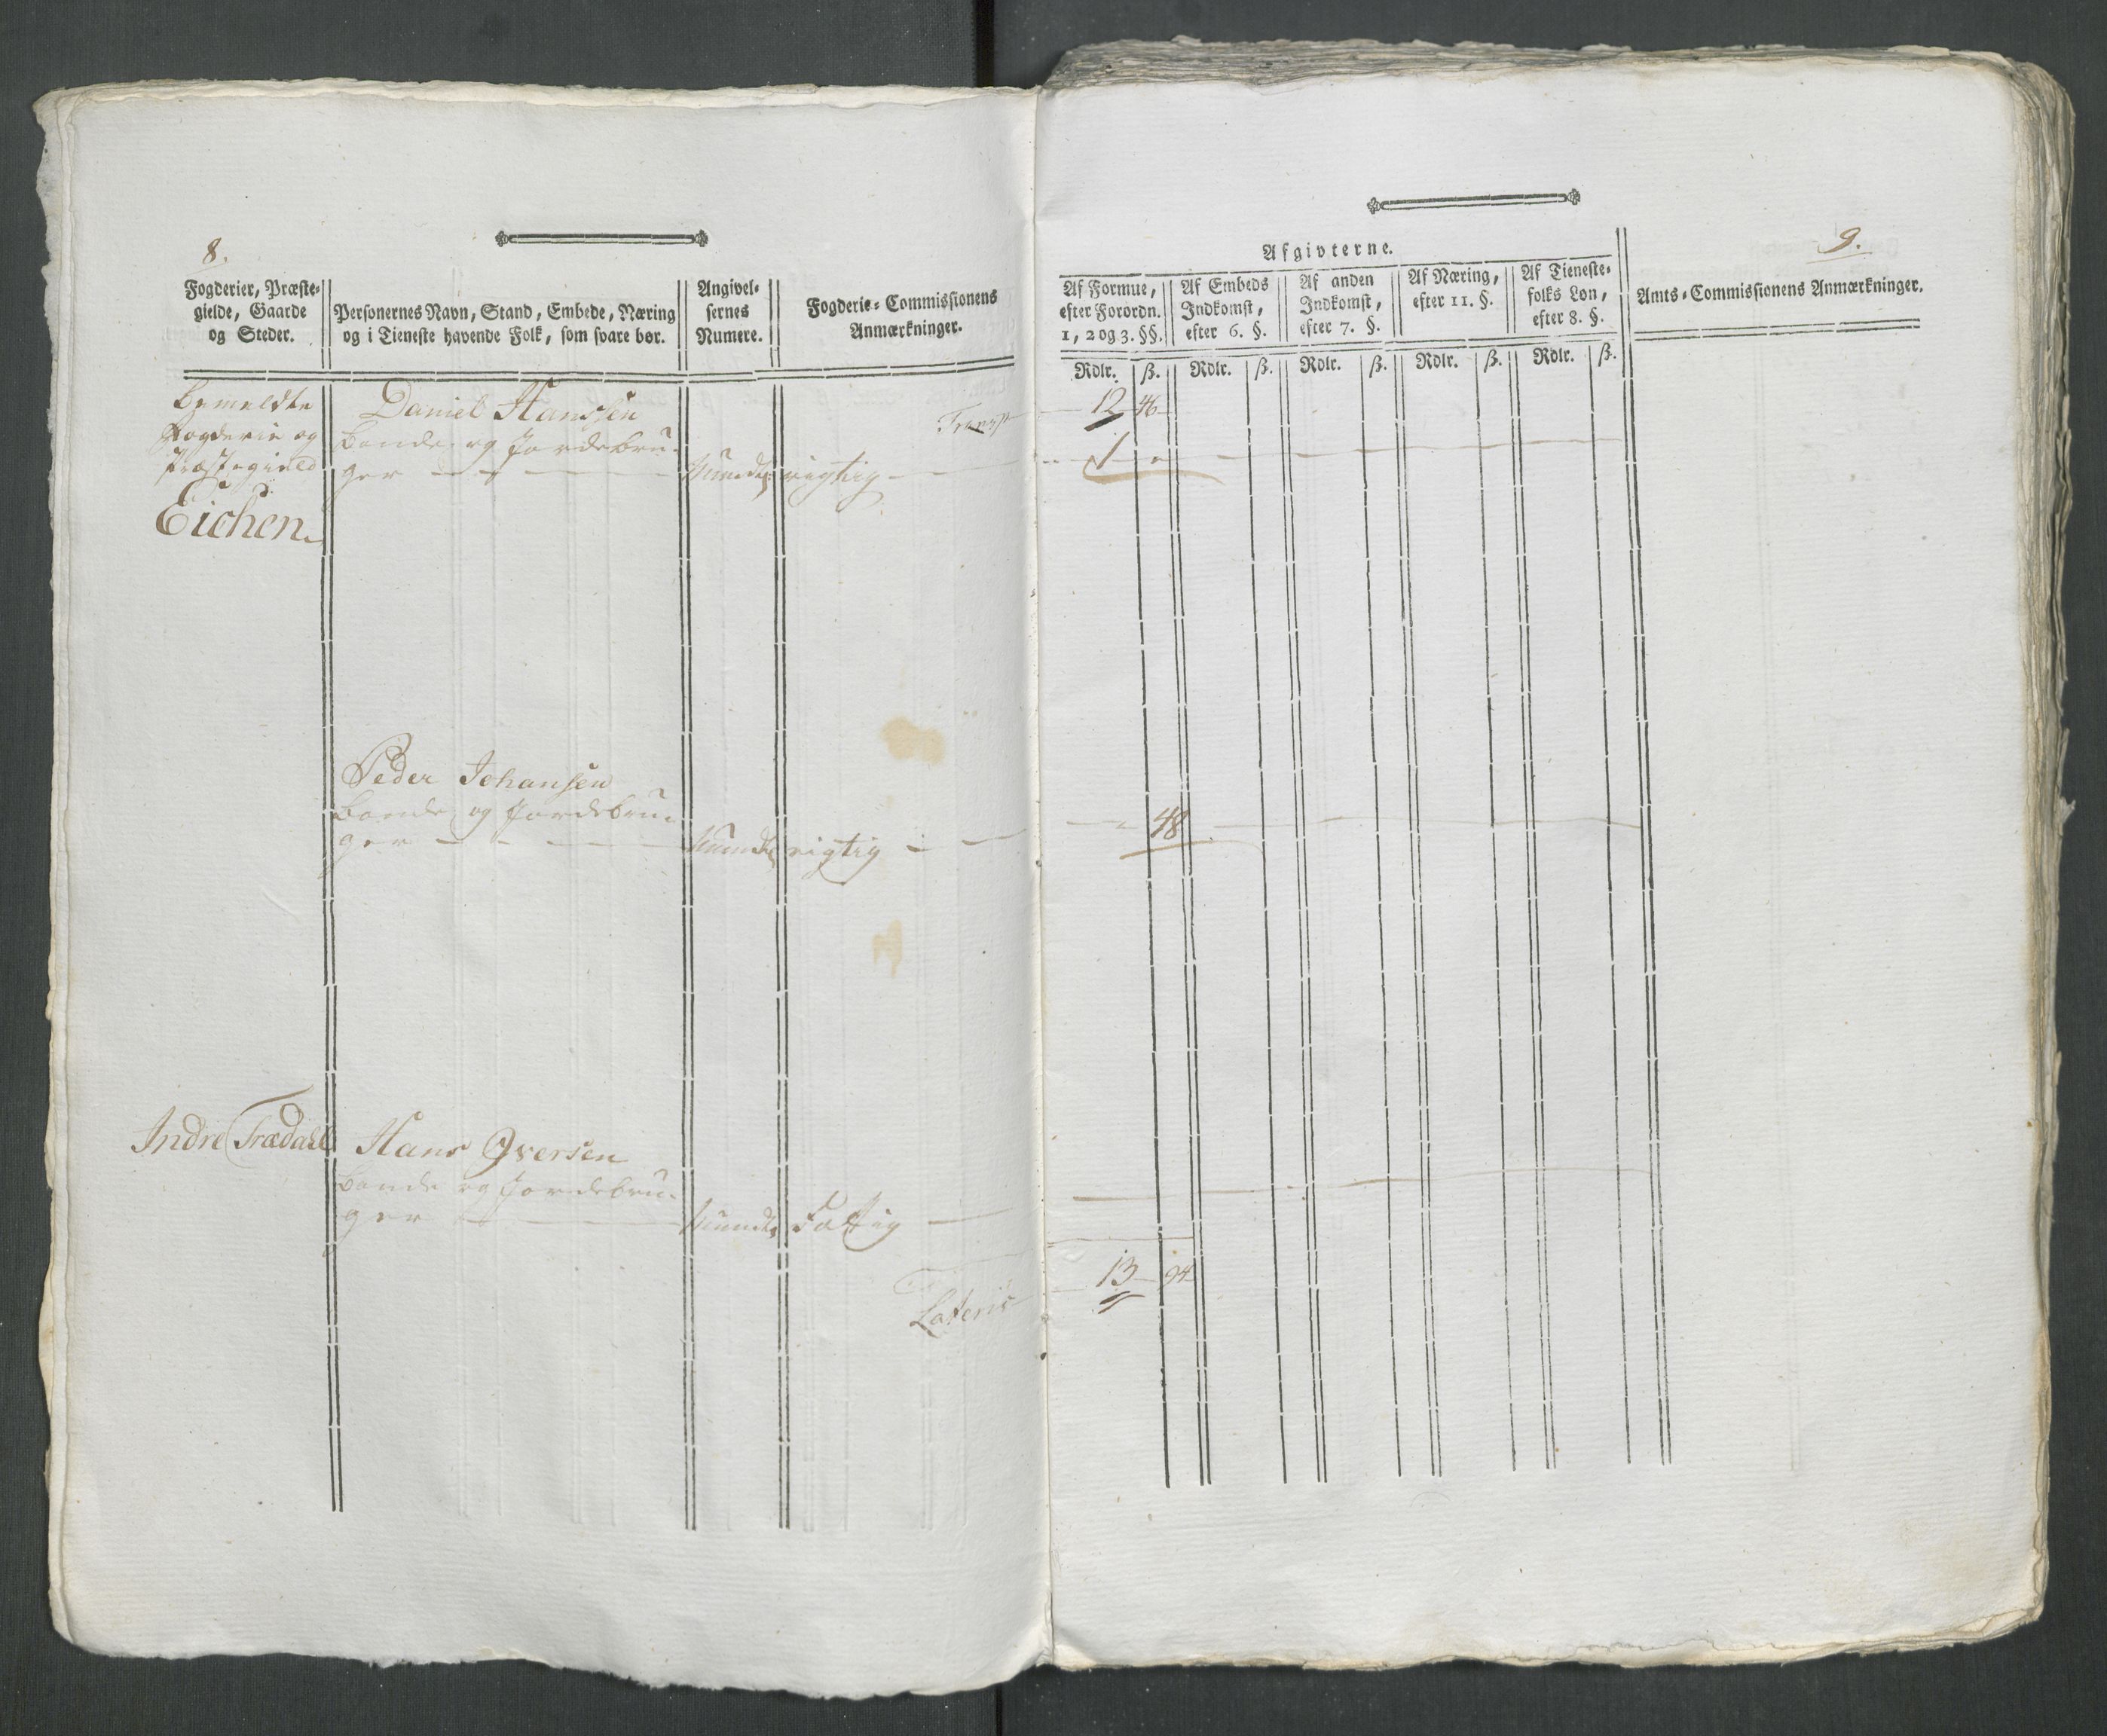 8.
Fogderier, Præste-
gielde, Gaarde
og Steder.
Personernes Navn, Stand, Embede, Næring
og i Tieneste havende Folk, som svare bør.
Angivel-
sernes
Numere.
Fogderie-Commissionens
Anmærkninger.
Bemeldte
Fogderie og
Præstegield
Eichen
Daniel Hanssen
Bonde og Jordebru-
ger
Mundtl. rigtig
Transp
Peder Johansen
Bonde og Jordebru-
ger
Mundtl. rigtig
Indre Trædahl
Hans Iversen
Bonde og Jordebru-
ger
Mundtl. Fattig
Lateris
9.
Afgivterne.
Af Formue,
efter Forordn.
1, 2 og 3. §§.
Af Embeds
Indkomst,
efter 6. §.
Af anden
Indkomst,
efter 7. §.
Af Næring,
efter 11. §.
Af Tieneste-
folks Løn,
efter 8. §.
Amts-Commissionens Anmærkninger.
Rdlr. ß. Rdlr. ß. Rdlr. ß. Rdlr. ß. Rdlr. ß.
12 46
1
48
13 94